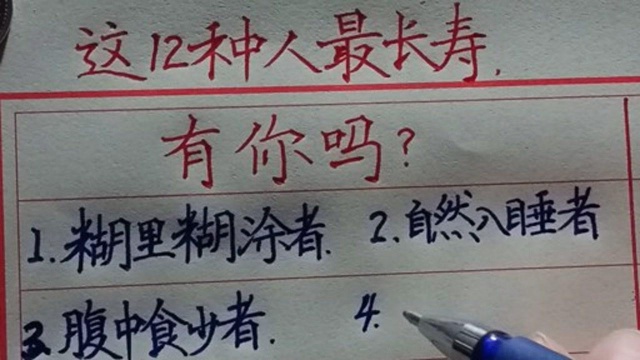 这12种人最长寿.
有你吗?
1.糊里糊涂者. 2.自然入睡者
3.腹中食少者. 4.